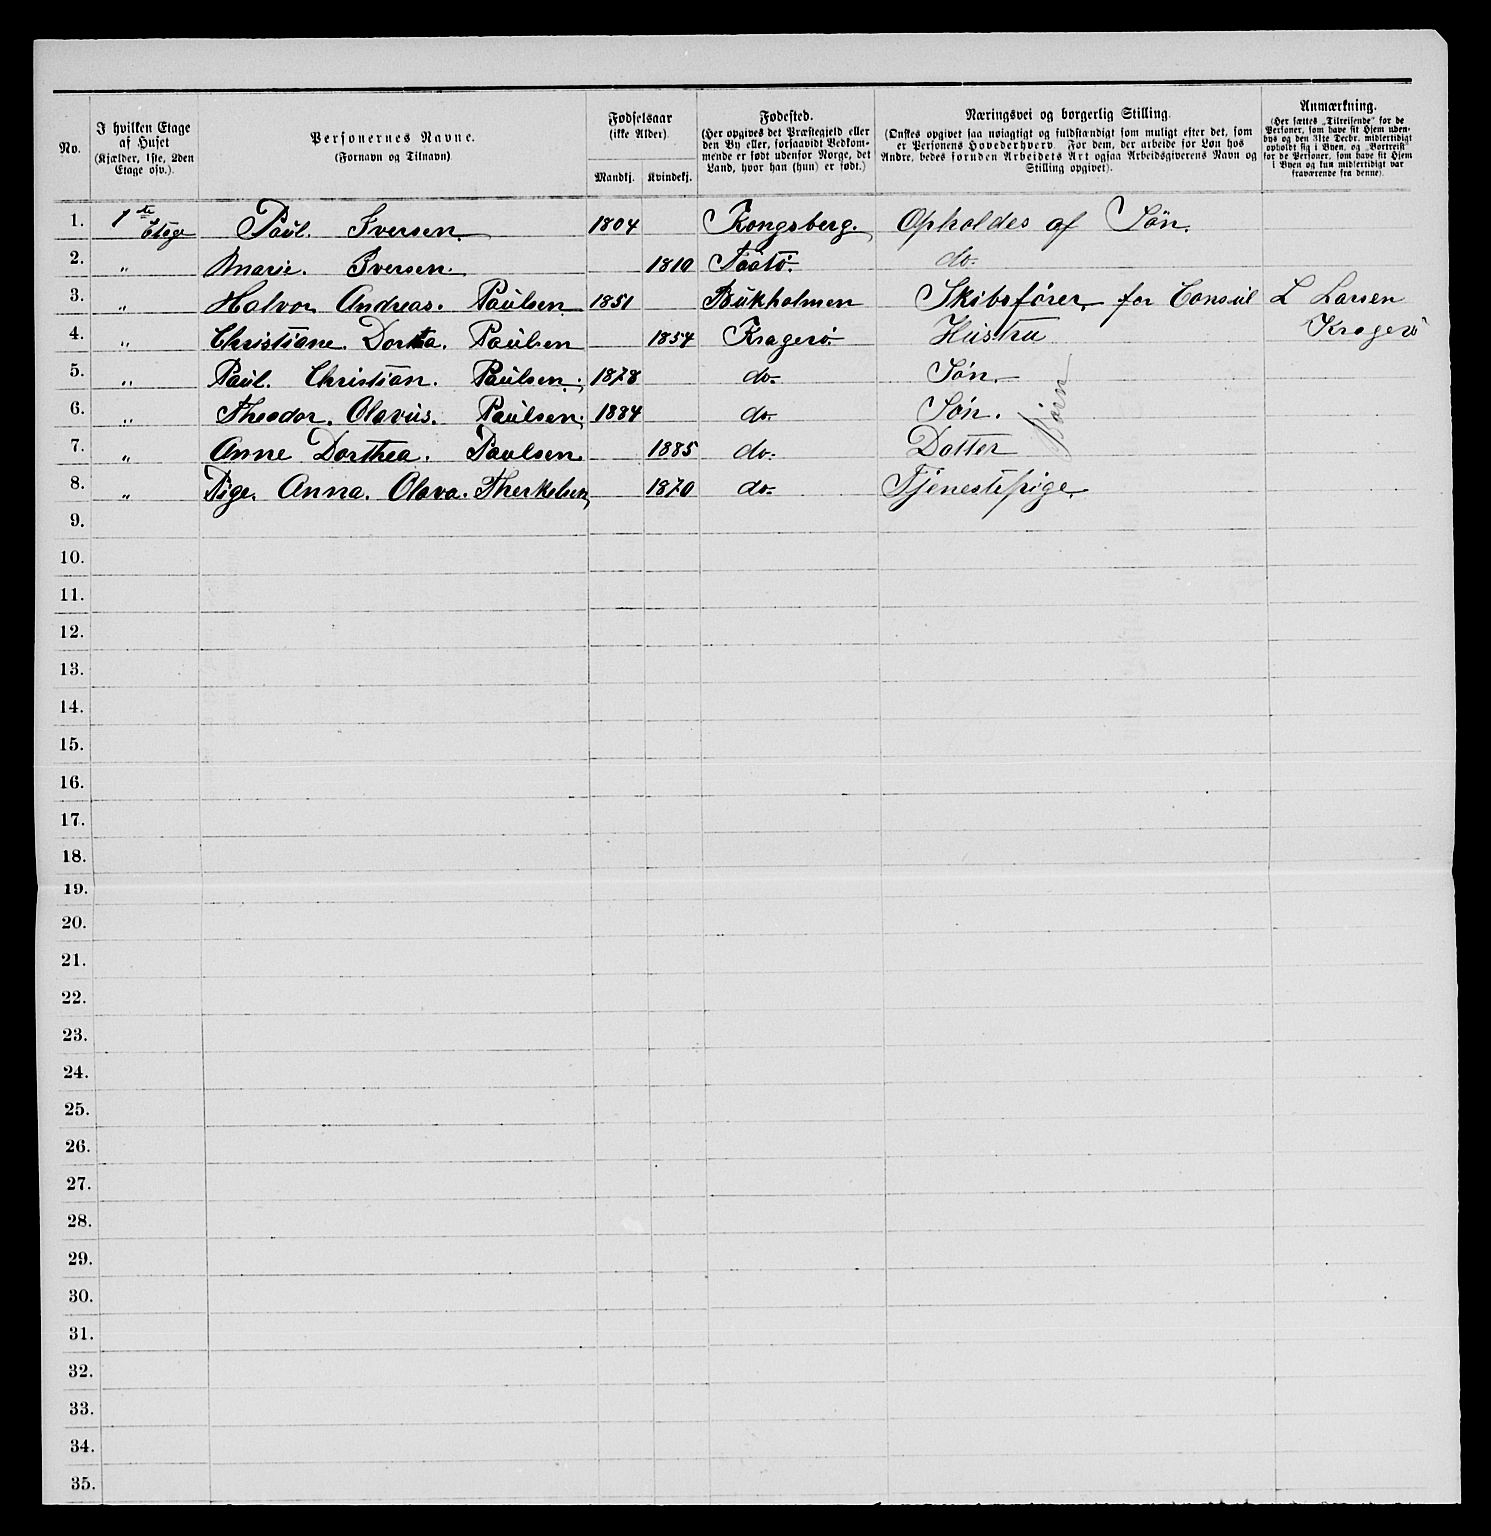 No.
I hvilken Etage af Huset
(Kjælder, 1ste, 2den Etage osv.).
Personernes Navne.
(Fornavn og Tilnavn)
Fødselsaar
(ikke Alder).
Mandkj.
Kvindekj.
Fødested.
(Her opgives det Præstegjeld eller
den By eller, forsaavidt Vedkom-
mende er født udenfor Norge, det
Land, hvor han (hun) er født.)
Næringsvei og borgerlig Stilling.
(Ønskes opgivet saa nøiagtigt og fuldstændigt som muligt efter det, som
er Personens Hovederhverv. For dem, der arbeide for Løn hos
Andre, bedes foruden Arbeidets Art ogsaa Arbeidsgiverens Navn og
Stilling opgivet).
Anmærkning.
(Her sættes „Tilreisende" for de
Personer, som have sit Hjem uden-
bys og den 31te Decbr. midlertidigt
opholdt sig i Byen, og „Bortreist"
for de Personer, som have sit Hjem
i Byen og kun midlertidigt var
fraværende fra denne).
1. 1ste Etage Paul. Iversen. 1804 Kongsberg. Opholdes af Søn.
2. " Marie. Iversen. 1810 Taatø. do.
3. " Halvor Andreas. Paulsen 1851 Bukholmen Skibsfører for Consul L Larsen Kragerø
4. " Christiane Dortea. Paulsen 1854 Kragerø. Hustru
5. " Paul. Christian. Paulsen. 1878 do. Søn.
6. " Theodor. Olavus. Paulsen. 1884 do. Søn.
Børn
7. " Anne Dorthea. Paulsen. 1885 do. Datter
8. " Pige. Anna. Olava. Therkelsen 1870 do. Tjenestepige.
9.
10.
11.
12.
13.
14.
15.
16.
17.
18.
19.
20.
21.
22.
23.
24.
25.
26.
27.
28.
29.
30.
31.
32.
33.
34.
35.